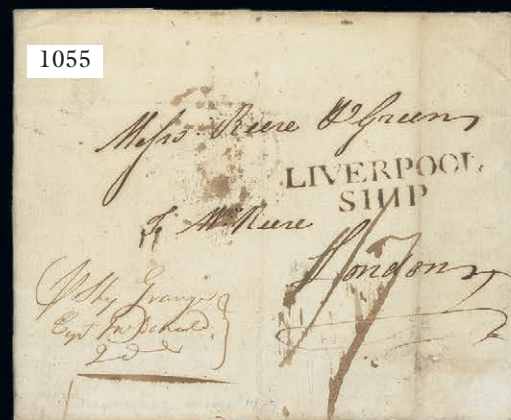 1055
Messrs Reere & Green
LIVERPOOL
SHIP
Mr Reere
London
Grange
Capt